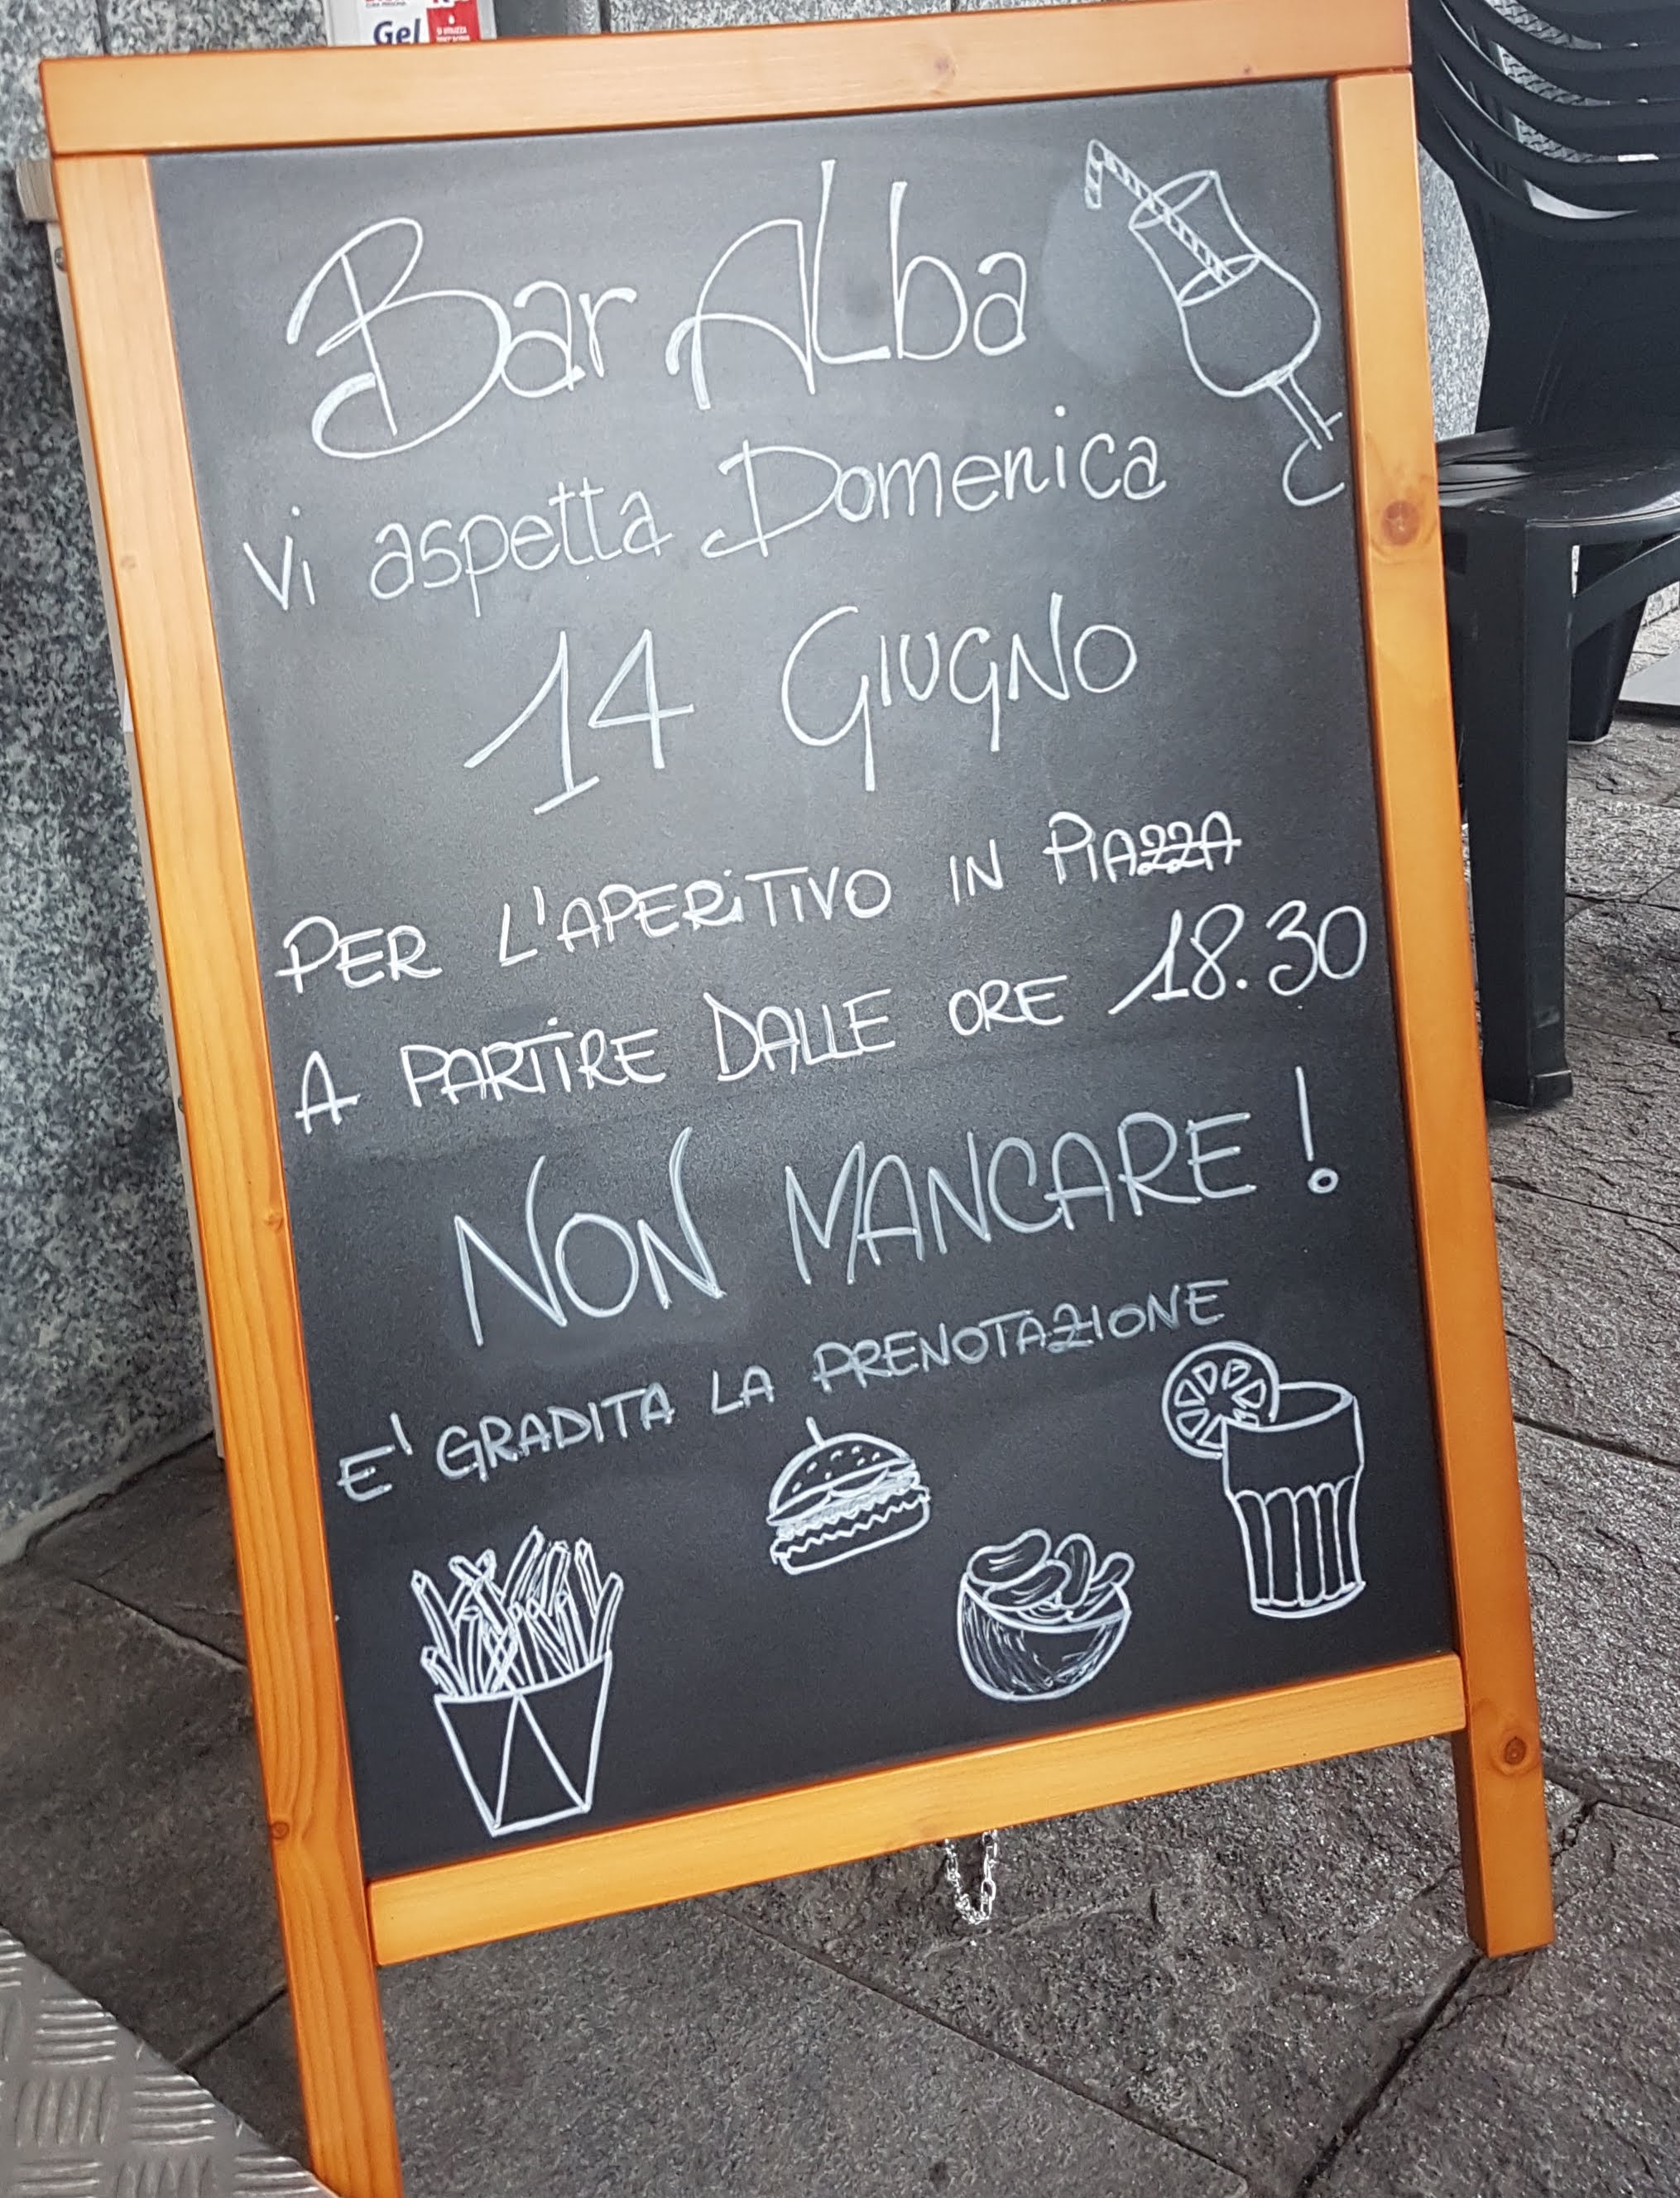 Gel
Bar Alba
Vi aspetta Domenica
14 GIUGNO
PER L'APERITIVO IN PIAZZA
A PARTIRE DALLE ORE 18.30
NON MANCARE!
E' GRADITA LA PRENOTAZIONE